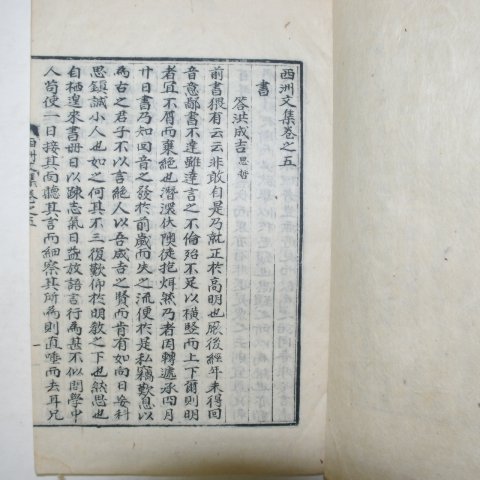 西洲文集卷之五
書
答洪成吉思哲
前書猥有云云非敢自是乃就正於高明也厥後經年未得回
音意鄙書不達雖達言之不倫殆不足以橫竪而上下爾則明
者宜不屑而棄絶也潛深伏隩徒抱然乃者周轉遞承四月
廿日書乃知回音之發於前歲而失之流便於是私竊歎息以
為古之君子不以言絶人以吾成吉之賢而肯有如向日妄科
思鎮誠小人也如之何其不三復歎仰於明敎之下也然思也
自栖遑來書冊日以踈志氣日益放語言行為甚不似問學中
人苟使一日接其面聽其言而細察其所為則直唾而去耳兄
西洲文集卷之五
一